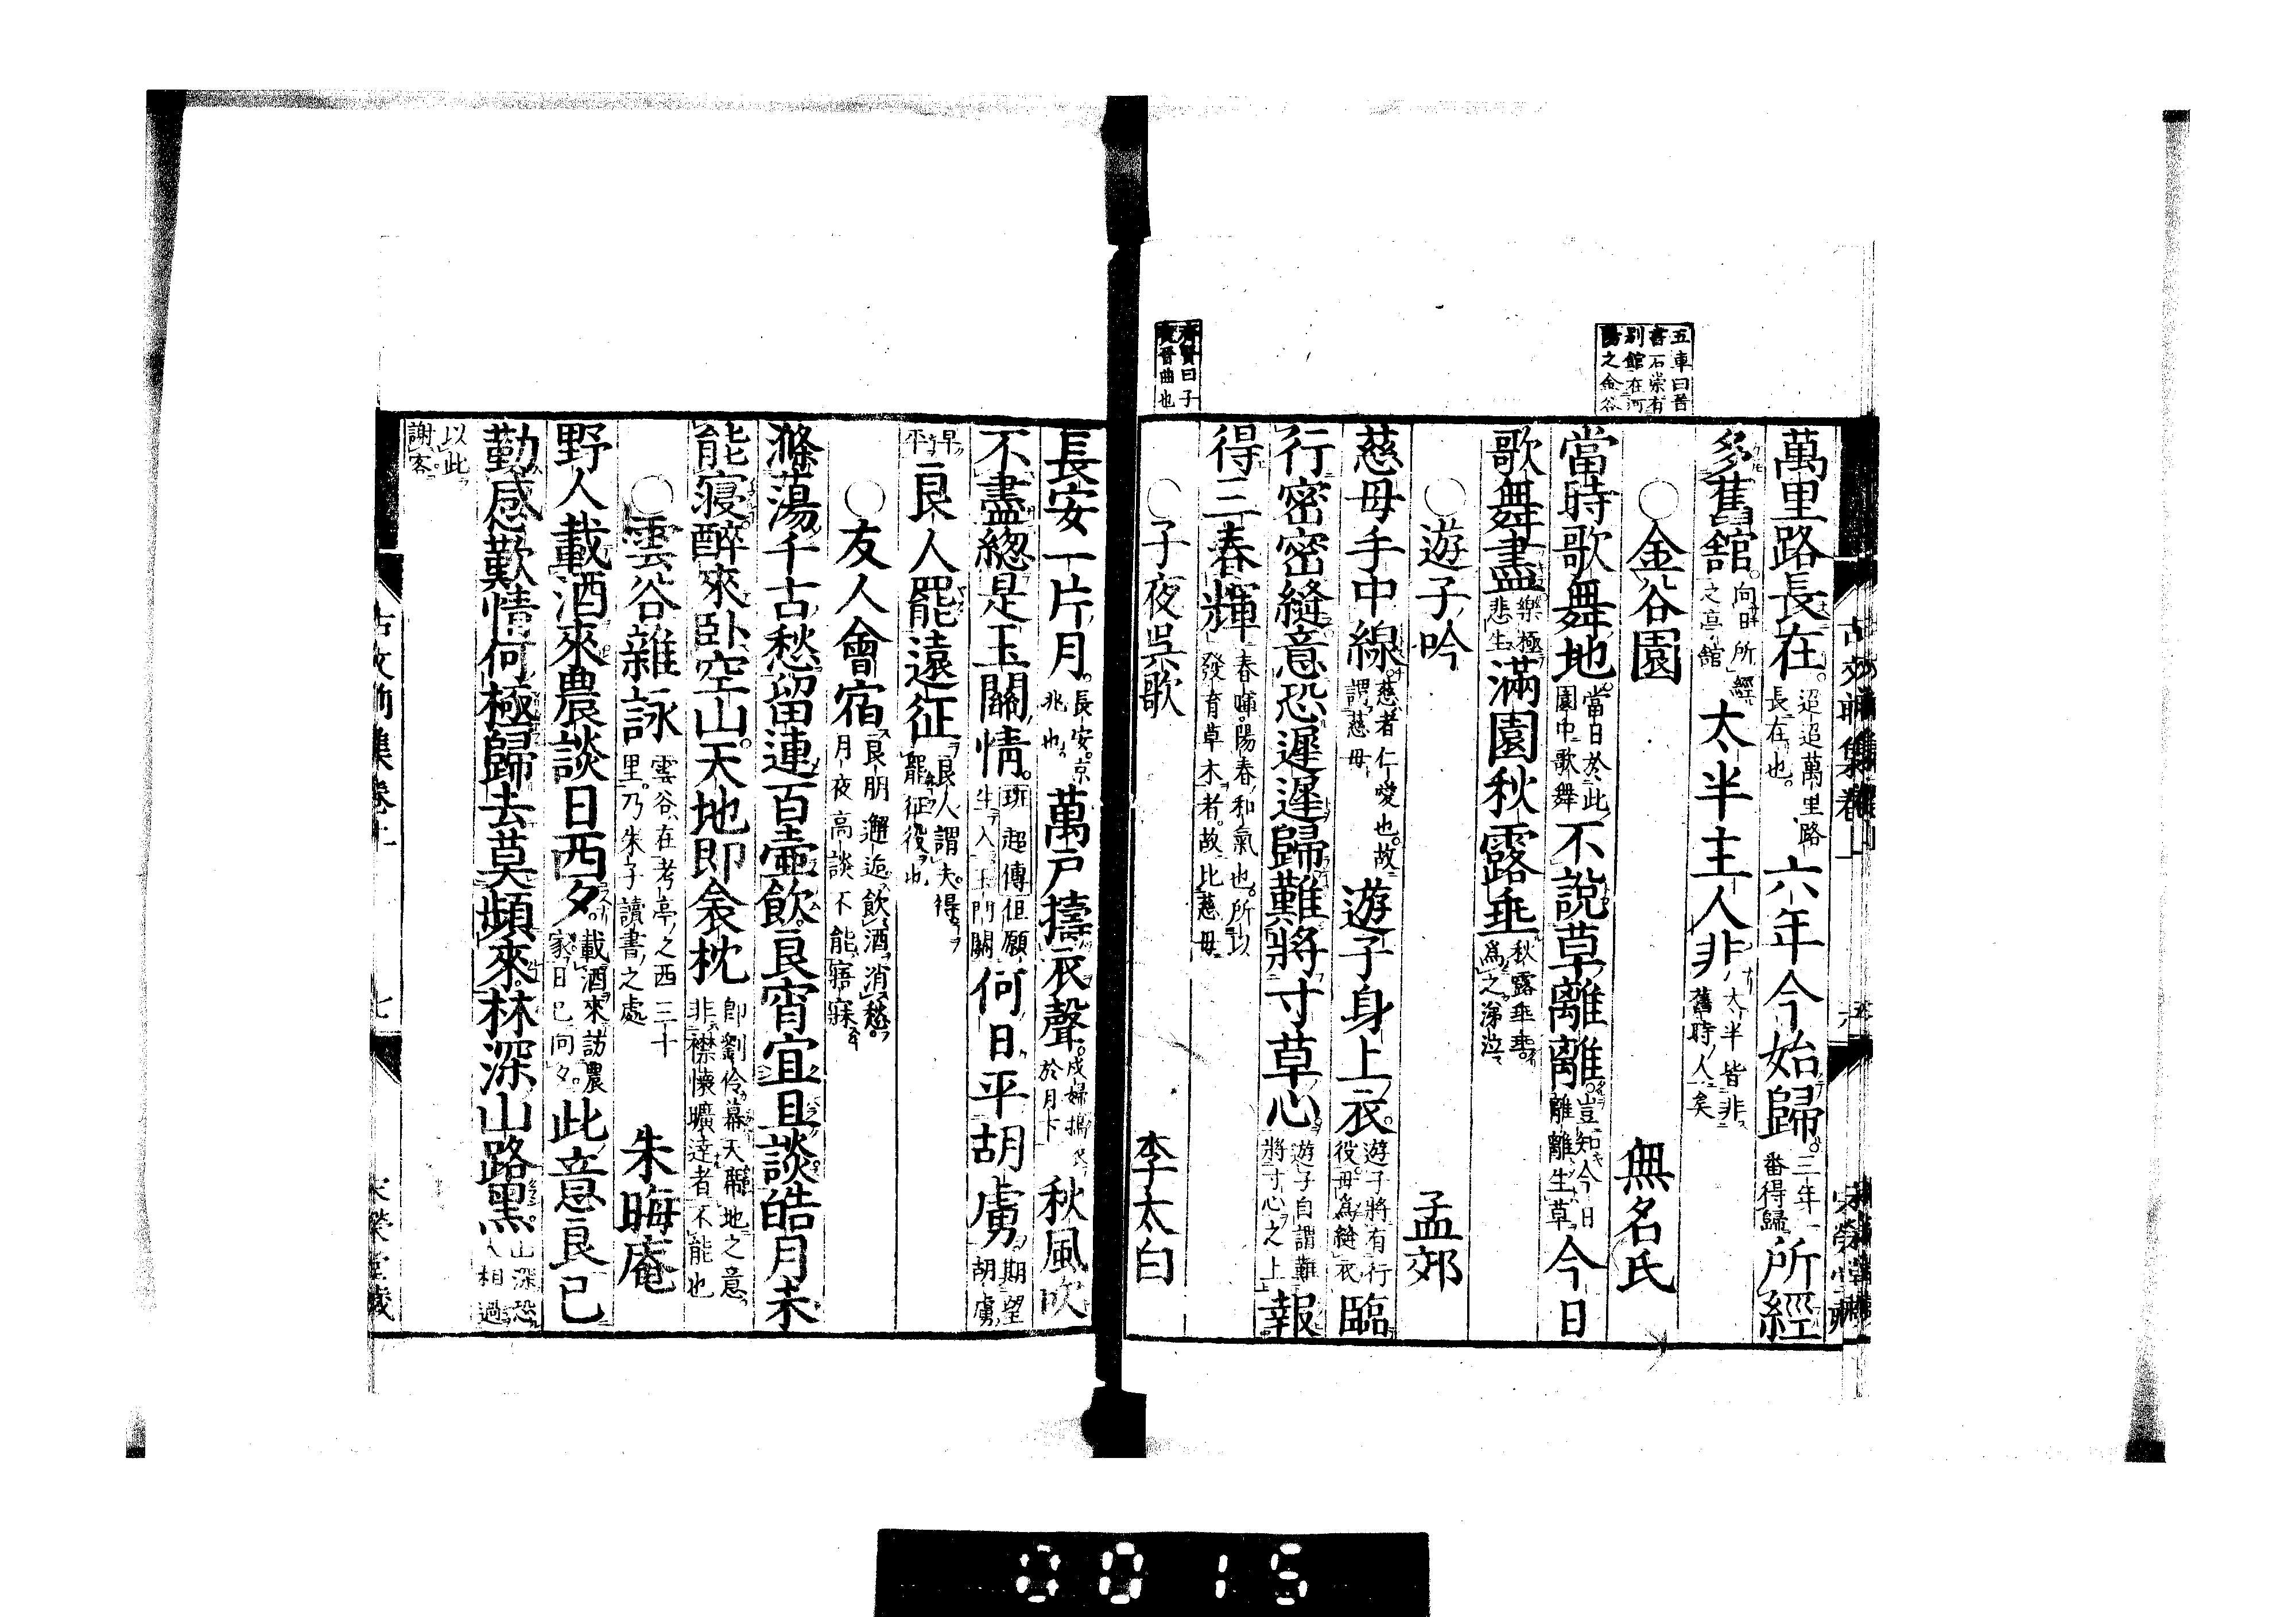 五車曰晉
書石崇有
別館在河
陽之金谷
萬里路長在。迢迢萬里路長在也。六年今始歸。三年一番得歸。所經
多舊舘。向日所經之亭舘太半主人非太半皆非舊時人矣
○金谷園 無名氏
當時歌舞地。當日於此園中歌舞不說草離離。豈知今日離離生草今日
歌舞盡樂極悲生滿園秋露垂秋露垂垂。為之涕泣
○遊子吟 孟郊
慈母手中線。慈者仁愛也。故謂慈母遊子身上衣。遊子將有行役。母為縫衣臨
行密密縫意恐遲遲歸難將寸草心。遊子自謂難將寸心之上報
得三春輝春暉。陽春和氣也。所以發育草木者。故比慈母
○子夜吳歌 李太白
齊賢曰子
夜晉曲也
長安一片月。長安。京兆也。萬戸擣衣聲。戍婦擣衣於月下秋風吹
不盡緫是玉關情。班超傳但願生入玉門關何日平胡虜期望胡虜
早平良人罷遠征良人謂夫。得罷征役也
○友人會宿良朋邂逅飲酒消愁。月夜高談不能寤寐
滌蕩千古愁留連百壷飲。良宵宜且談皓月未
能寢醉來卧空山。天地即衾枕即劉伶幕天席地之意。非襟懷曠達者不能也
○雲谷雜詠雲谷在考亭之西三十里。乃朱子讀書之處 朱晦庵
野人載酒來農談日西夕。載酒來訪農家。日已向夕。此意良已
勤感歎情何極歸去莫頻來。林深山路黒。山深恐人相過
以此
謝客。
古文前集卷上 七